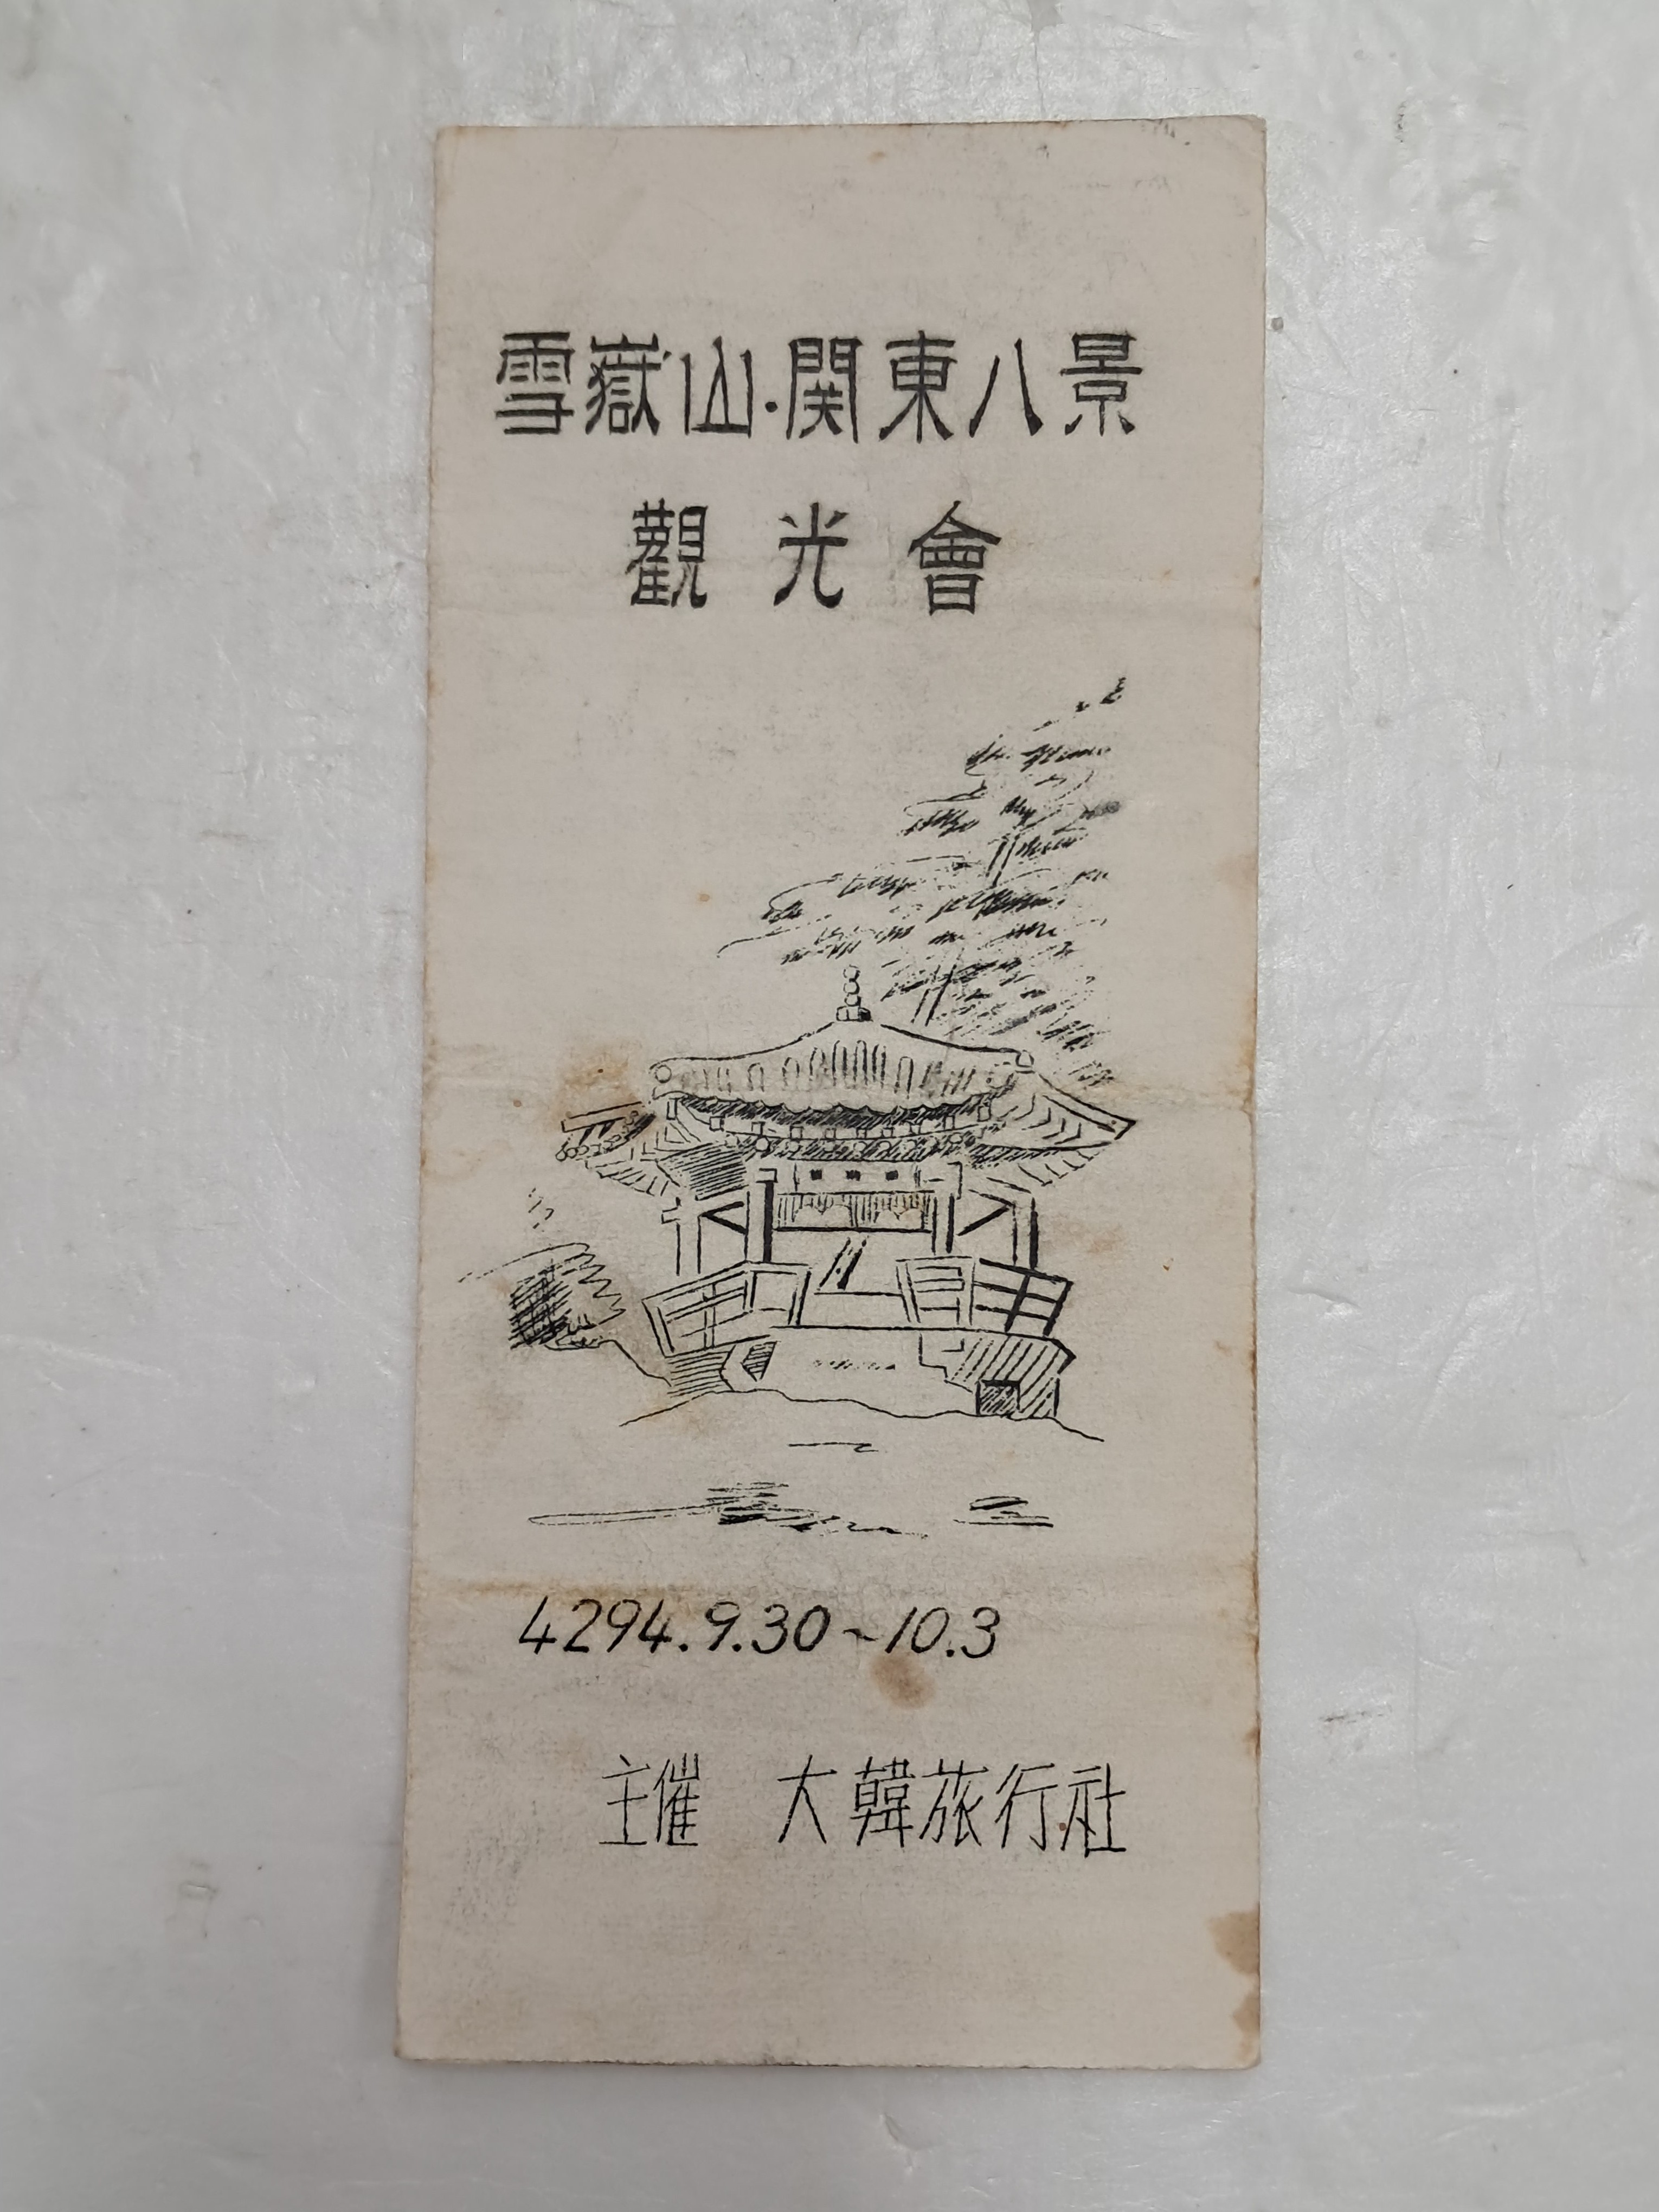 雪嶽山·関東八景
觀光會
4294.9.30~10.3
主催 大韓旅行社